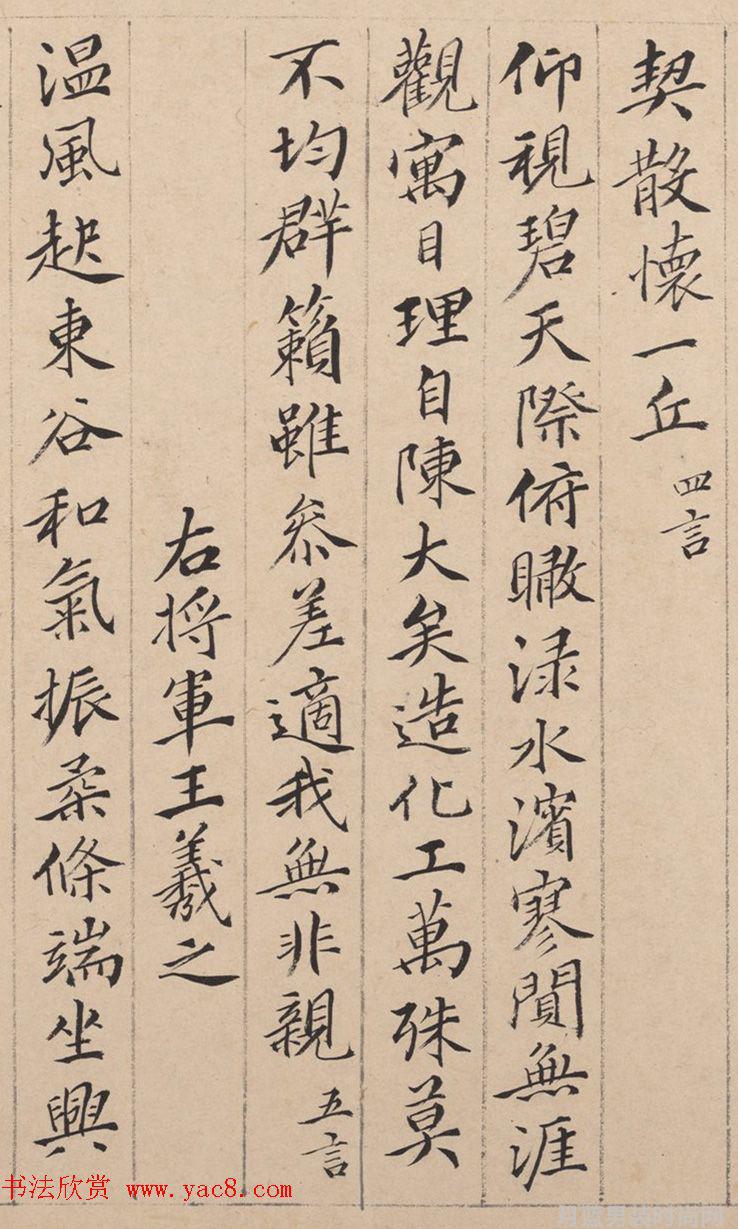 契散懷一丘 四言
仰視碧天際俯瞰渌水濱寥閴無涯
觀寓目理自陳大矣造化工萬殊莫
不均群籟雖叅差適我無非親 五言
右将軍王羲之
温風起東谷和氣振柔條端坐興
书法欣赏 www.yac8.com